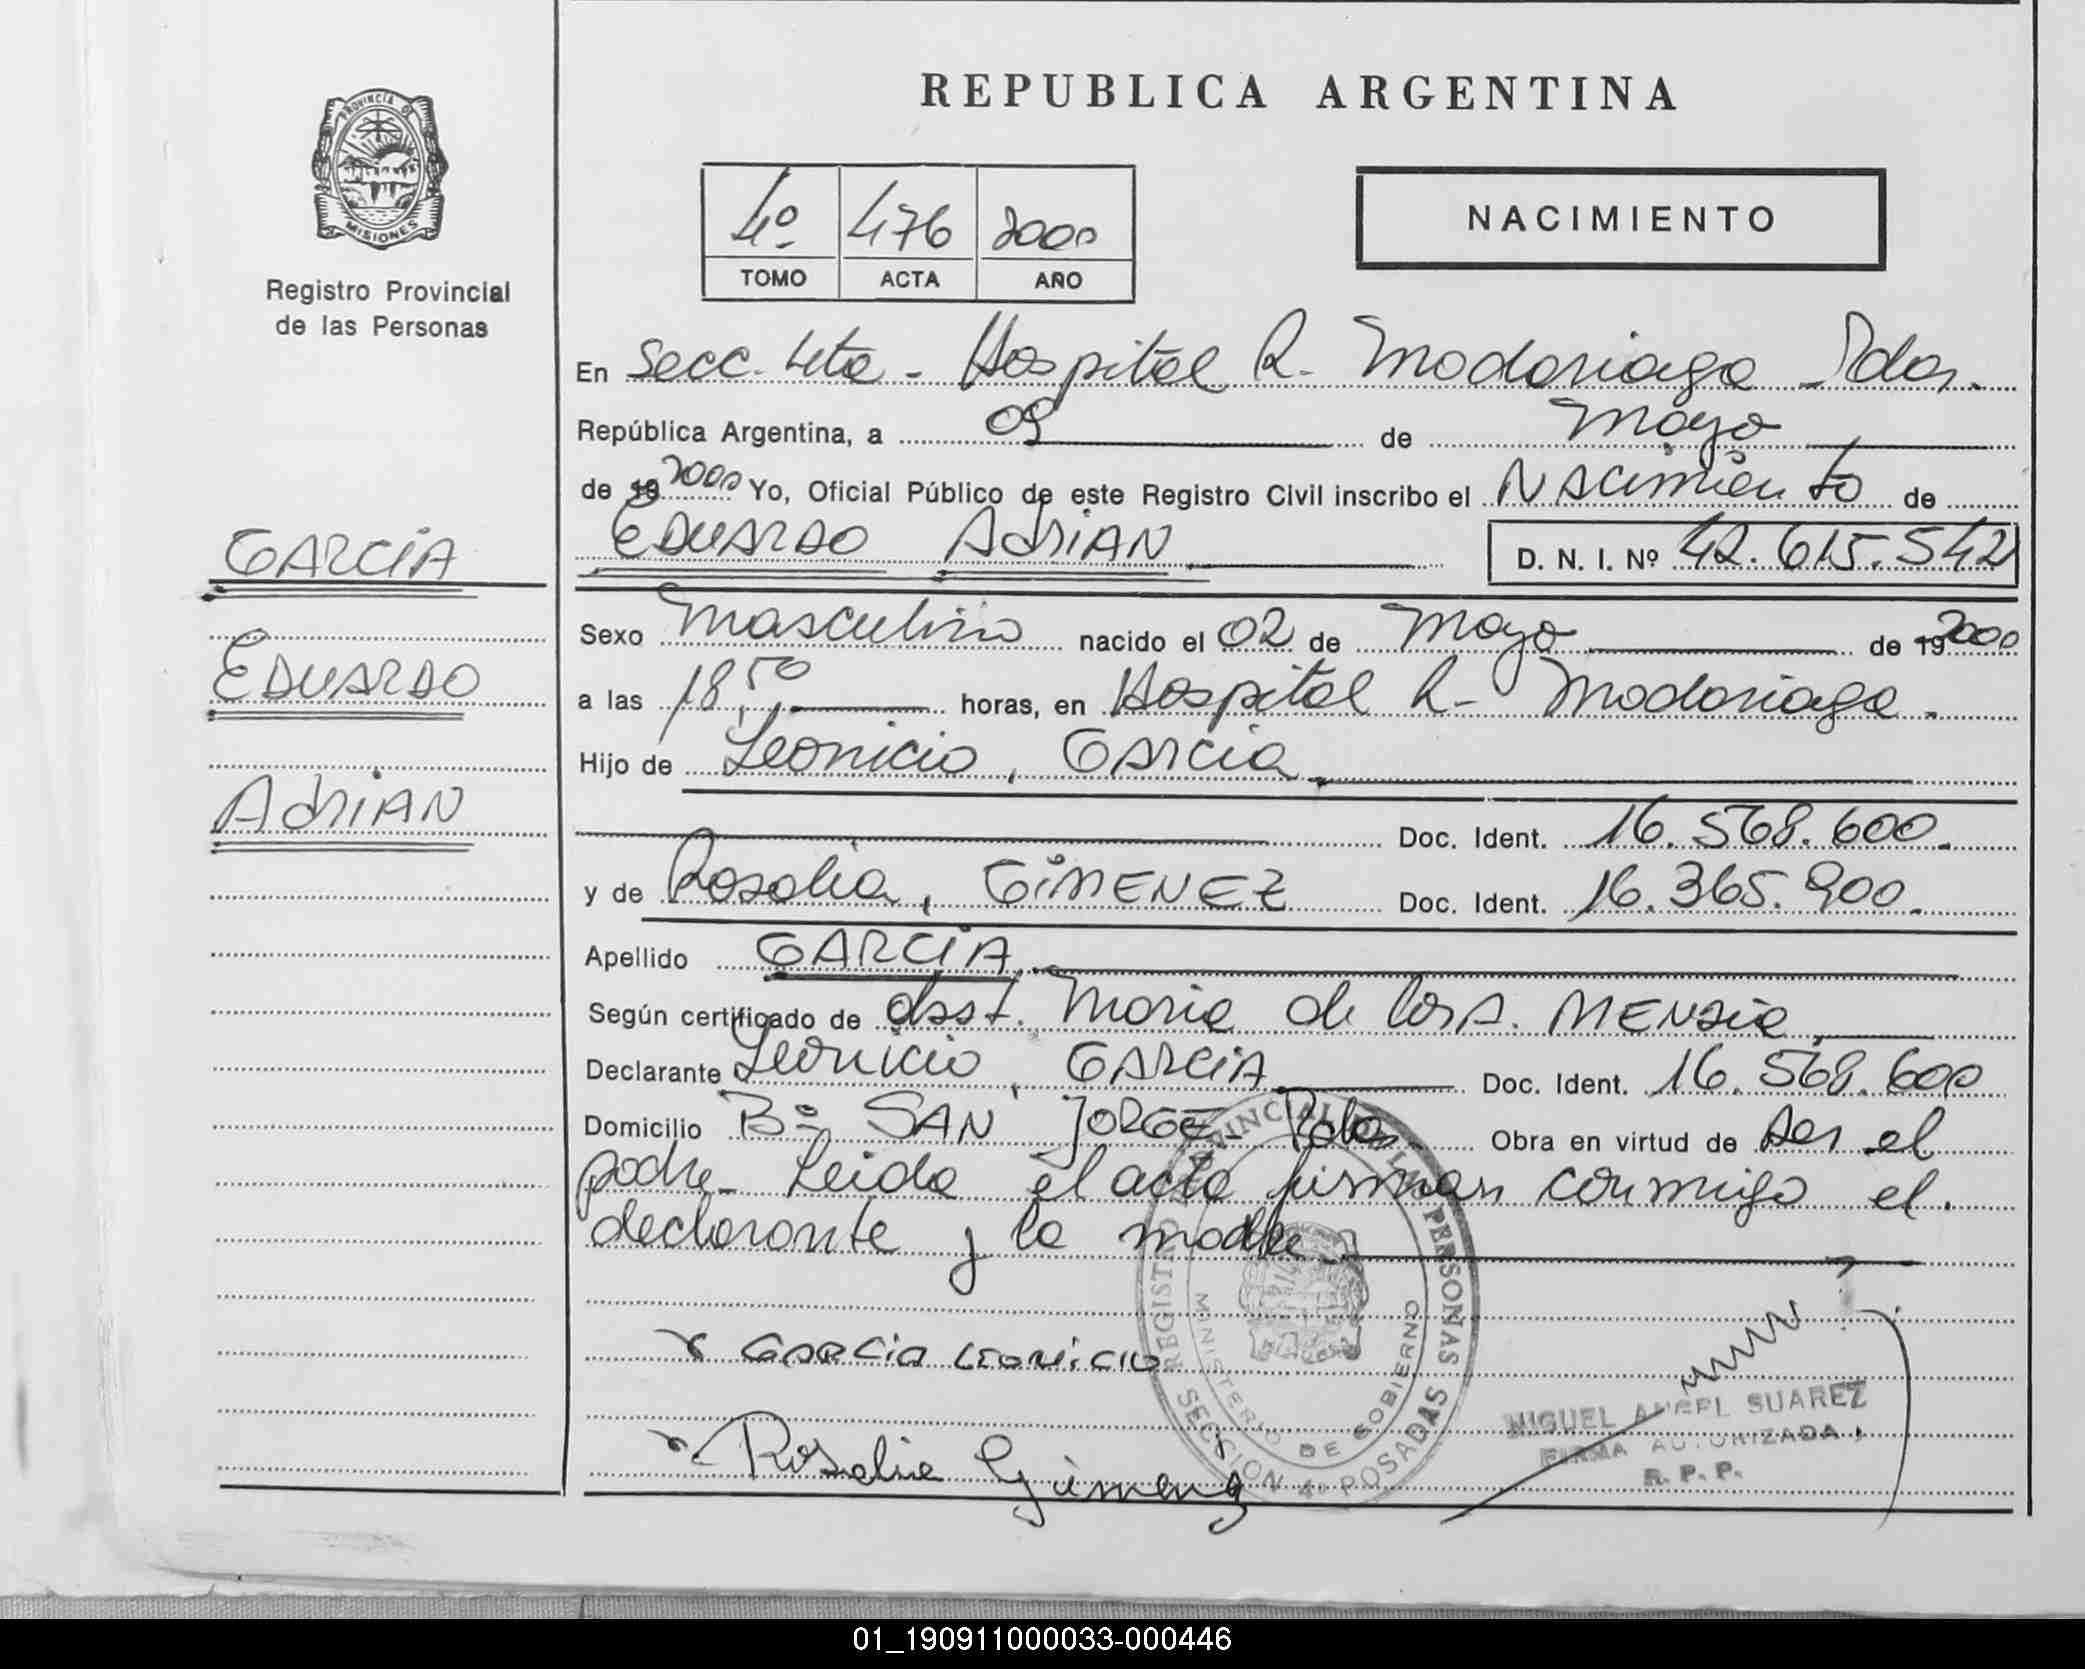 REPUBLICA ARGENTINA
PROVINCIA DE
MISIONES
Registro Provincial
de las Personas
4º 476 2000
TOMO ACTA AÑO
NACIMIENTO
En Secc. 4ta - Hospital R. Madariaga - Pdas.
República Argentina, a 09 de Mayo
de 19 2000 Yo, Oficial Público de este Registro Civil inscribo el Nacimiento de
EDUARDO AdriAN D. N. I. Nº 42.615.542
GARCIA
EDUARDO
AdriAN
Sexo Masculino nacido el 02 de Mayo de 19 2000
a las 18,50 horas, en Hospital R- Madariaga.
Hijo de Leonicio, GARCIA
Doc. Ident. 16.568.600.
y de Rosalia, GIMENEZ Doc. Ident. 16.365.900.
Apellido GARCIA,
Según certificado de Obst. Maria de los A. MENDIE
Declarante Leonicio, GARCIA Doc. Ident. 16.568.600
Domicilio Bº SAN JORGE- Pdas. Obra en virtud de ser el
padre- Leida el acta firman conmigo el.
declarante y la madre
x GARCIA LEONICIO
x Rosalia Gimenez
REGISTRO PROVINCIAL DE LAS PERSONAS
MINISTERIO DE GOBIERNO
SECCION 4º POSADAS
MIGUEL ANGEL SUAREZ
FIRMA AUTORIZADA
R. P. P.
01_190911000033-000446